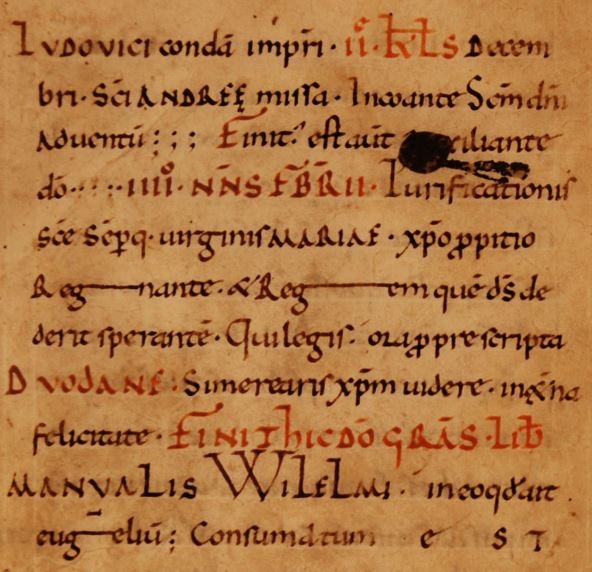 LVDOVICI condā imp̄ri · IIº · k̄Ls Decem
bri · Sc̄i ANDREĘ missa · Incoante Sc̄m dn̄i
Adventū ; ; ; Finit᷑ est aut̄ auxiliante
dō · · : · · IIIIº · NN̄S FB̄RII · Purificationis
Sc̄e Semp̄q · virginis MARIAE · xp̄o ꝓpitio
Reg nante · & Reg em quē ds̄ de
derit sperantē · Qui legis · ora ꝓ prescripta
DVODANE · Si merearis xp̄m videre · in &̄na
felicitate · FINIT hic DŌ GRĀS · Lib̄
MANVALIS WILELMI · in eo qd̄ ait
eug̅ eliū ; Consumatum e s T